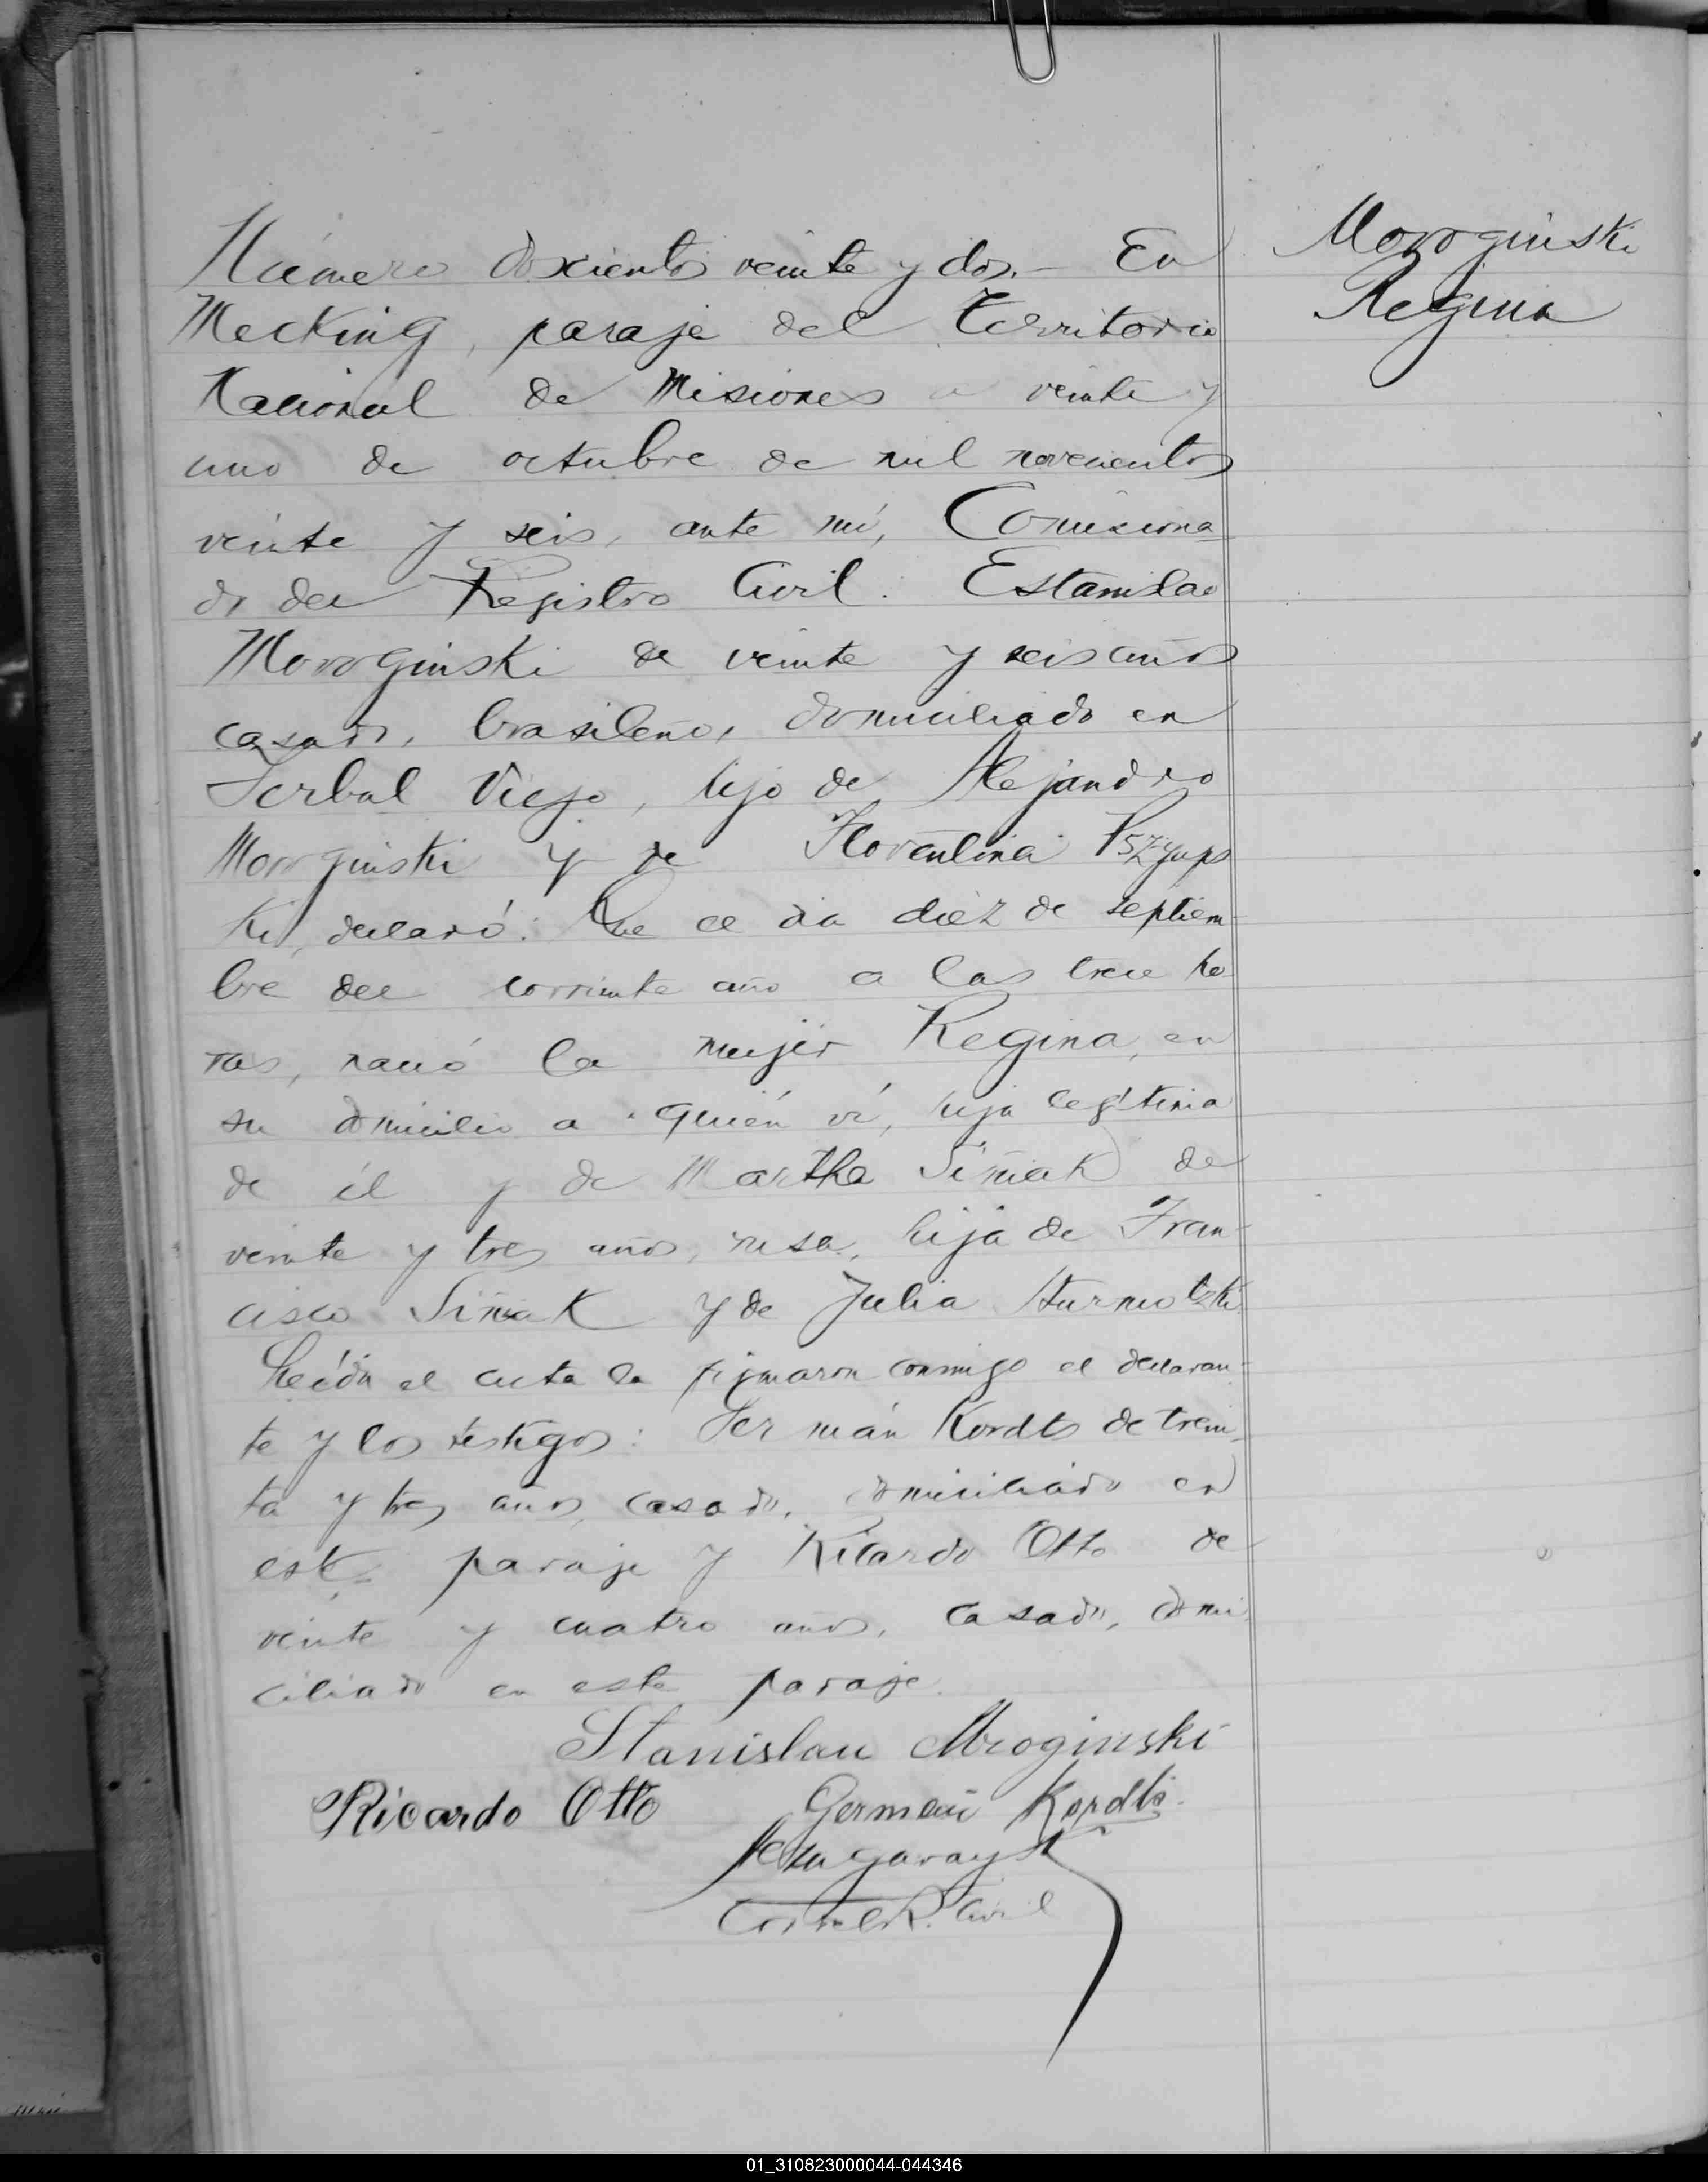 Número doscientos veinte y dos.- En
Mecking, paraje del Territorio
Nacional de Misiones a veinte y
uno de octubre de mil novecientos
veinte y seis, ante mí, Comisiona
do del Registro Civil: Estanislao
Moroginski de veinte y seis años
casado, brasileño, domiciliado en
Yerbal Viejo, hijo de Alejandro
Moroginski y de Florentina
ki, declaró: Que el dia diez de septiem-
bre del corriente año a las trece ho-
ras, nació la mujer Regina, en
su domicilio a quién ví, hija legítima
de él y de Martha Siñiak de
veinte y tres años, rusa, hija de Fran-
cisco Siñiak y de Julia
Leída el acta la firmaron conmigo el declaran-
te y los testigos: Germán Kordts de trein-
ta y tres años, casado, domiciliado en
este paraje y Ricardo Otto de
veinte y cuatro años, casado, domi-
ciliado en este paraje.
Stanislau Mroginski
Ricardo Otto Germán Kordts
Com. R. Civil
Moroginski
Regina
01_310823000044-044346